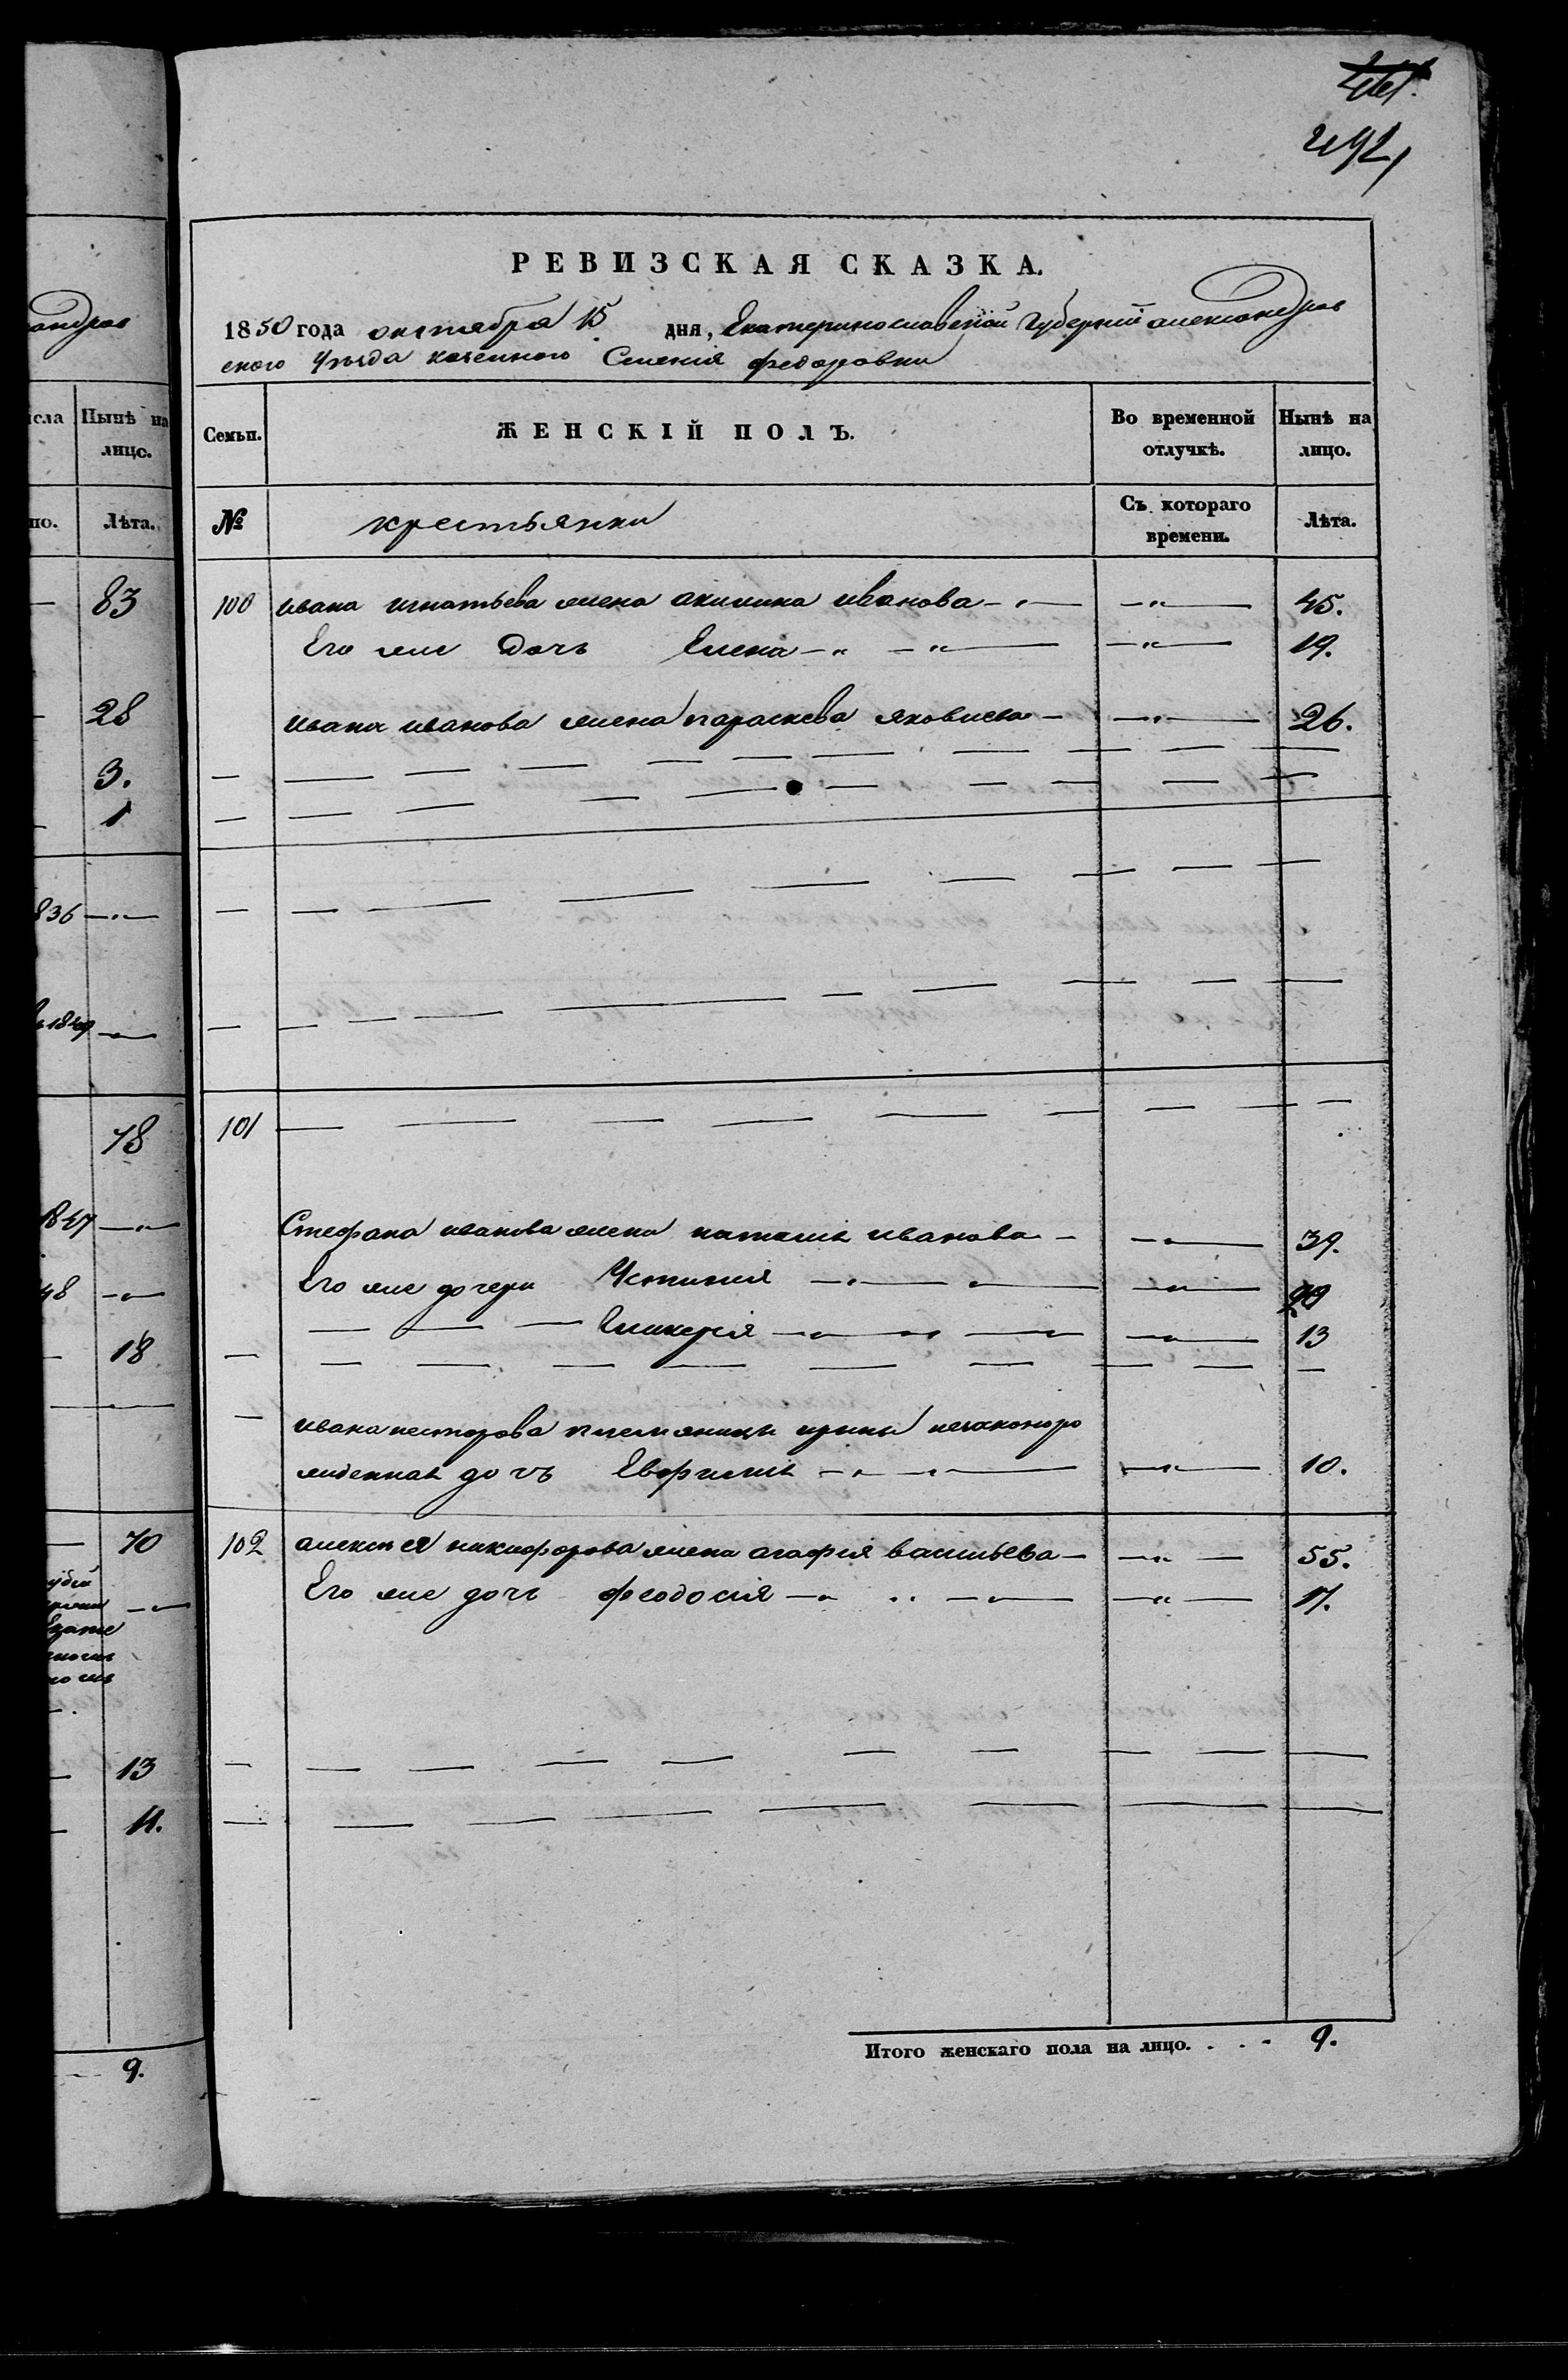 292
РЕВИЗСКАЯ СКАЗКА.
1850 года октября 15 дня, Екатеринославской Губерніи александров
ского Уѣзда казенного Селенія федоровки
Семьи.
ЖЕНСКІЙ ПОЛЪ.
Во временной отлучкѣ.
Нынѣ на лицо.
№
крестьянки
Съ котораго времени.
Лѣта.
100 ивана игнатьева жена акилина иванова —"— —"— 45.
Его же дочь Елена —" —"— —"— 19.
ивана иванова жена параскева яковлева — —"— 26.
101
Стефана иванова жена наталія иванова — —"— 39.
Его же дочери Устинія —"— "— —"—
— — — Гликерія —"— " —"— —"— 13
ивана несторова племяницы ирины незаконоро
жденная дочь Евфимія —"— "— —"— 10.
102 алексѣя никифорова жена агафія васильева — —"— 55.
Его же дочь феодосія —" " —"— —"— 17.
Итого женскаго пола на лицо. . . . 9.
андров
исла
Нынѣ на лицо.
но.
Лѣта.
83
28
3.
1
836 —"—
1849 —"—
78
1847 —"—
48 —"—
18
70
13
11.
9.